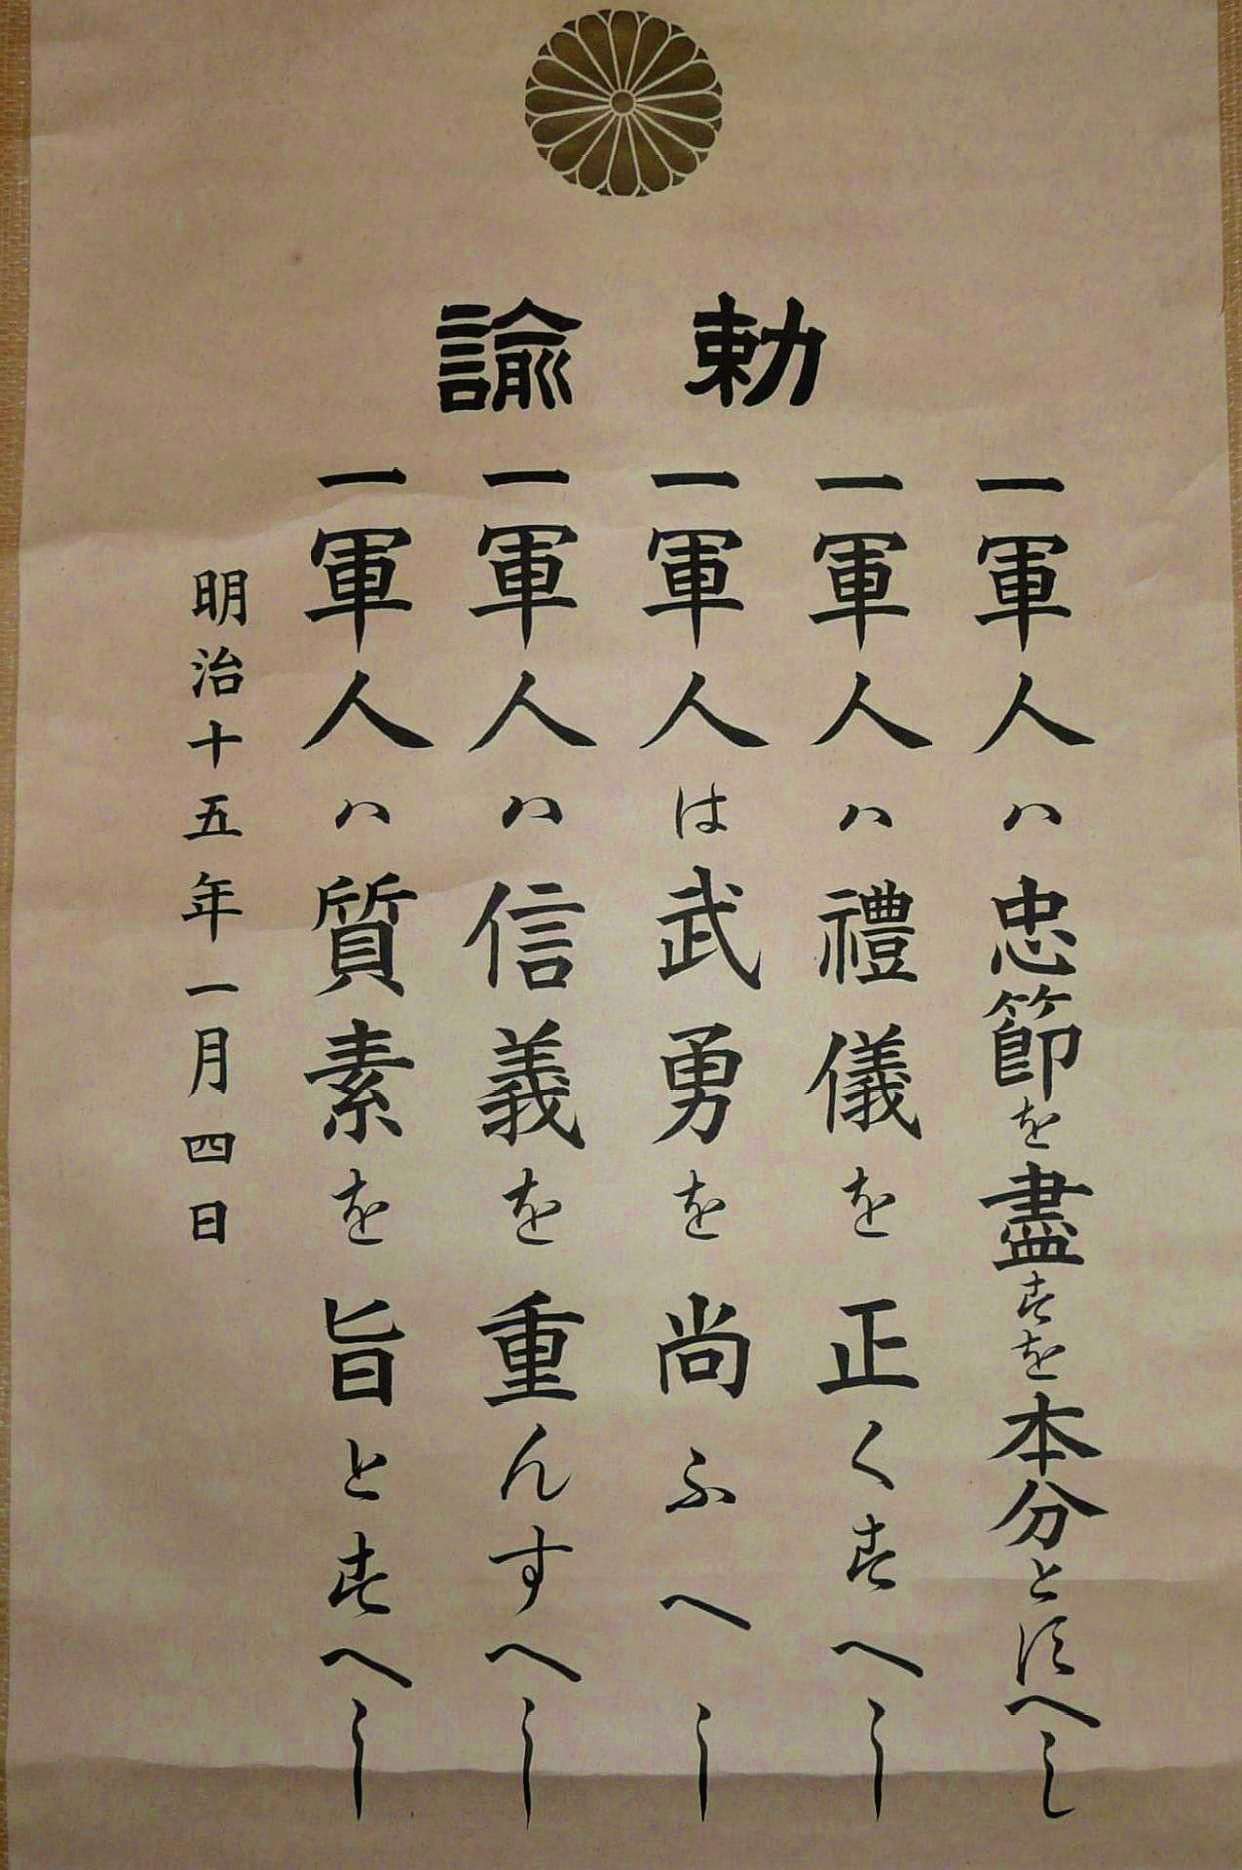 勅諭
一軍人ハ忠節を盡すを本分とすへし
一軍人ハ禮儀を正くすへし
一軍人は武勇を尚ふへし
一軍人ハ信義を重んすへし
一軍人ハ質素を旨とすへし
明治十五年一月四日